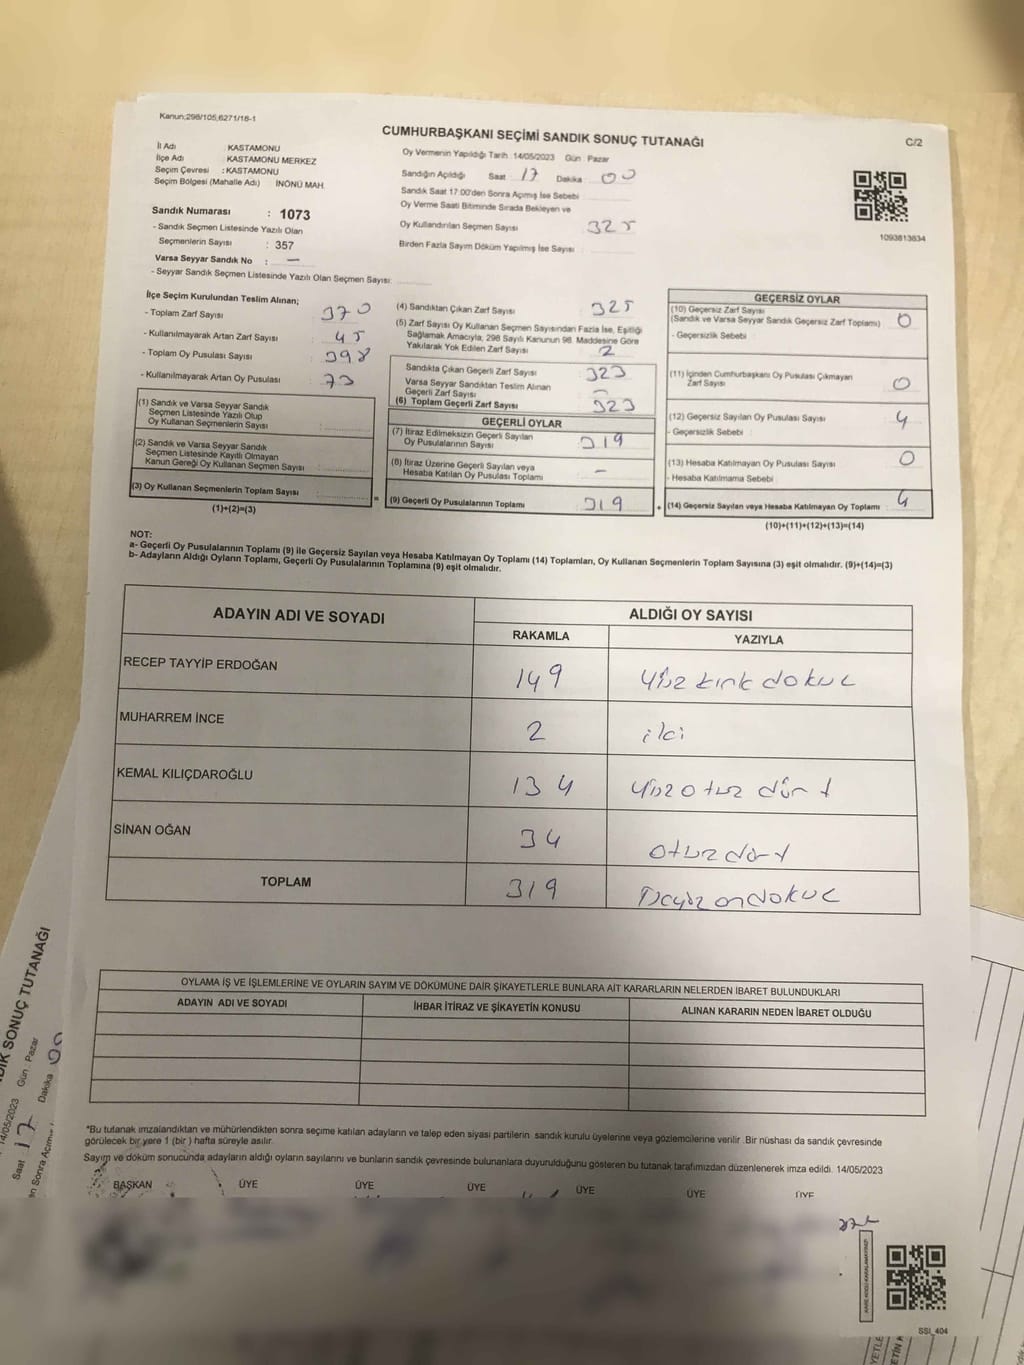 Kanun;298/105,6271/18-1
CUMHURBAŞKANI SEÇİMİ SANDIK SONUÇ TUTANAĞI
C/2
İl Adı KASTAMONU
İlçe Adı : KASTAMONU MERKEZ
Seçim Çevresi : KASTAMONU
Seçim Bölgesi (Mahalle Adı) İNÖNÜ MAH.
Sandık Numarası : 1073
- Sandık Seçmen Listesinde Yazılı Olan
Seçmenlerin Sayısı : 357
Varsa Seyyar Sandık No : —
- Seyyar Sandık Seçmen Listesinde Yazılı Olan Seçmen Sayısı:
Oy Vermenin Yapıldığı Tarih 14/05/2023 Gün : Pazar
Sandığın Açıldığı Saat : 17 Dakika : 00
Sandık Saat 17:00'den Sonra Açımış İse Sebebi
Oy Verme Saati Bitiminde Sırada Bekleyen ve
Oy Kullandırılan Seçmen Sayısı 325
Birden Fazla Sayım Döküm Yapılmış İse Sayısı
1093813634
İlçe Seçim Kurulundan Teslim Alınan;
- Toplam Zarf Sayısı 370
- Kullanılmayarak Artan Zarf Sayısı : 45
- Toplam Oy Pusulası Sayısı 398
- Kullanılmayarak Artan Oy Pusulası : 73
(1) Sandık ve Varsa Seyyar Sandık
Seçmen Listesinde Yazılı Olup
Oy Kullanan Seçmenlerin Sayısı :
(2) Sandık ve Varsa Seyyar Sandık
Seçmen Listesinde Kayıtlı Olmayan
Kanun Gereği Oy Kullanan Seçmen Sayısı :
(3) Oy Kullanan Seçmenlerin Toplam Sayısı :
(1)+(2)=(3)
(4) Sandıktan Çıkan Zarf Sayısı : 325
(5) Zarf Sayısı Oy Kullanan Seçmen Sayısından Fazla İse, Eşitliği
Sağlamak Amacıyla, 298 Sayılı Kanunun 98. Maddesine Göre
Yakılarak Yok Edilen Zarf Sayısı : 2
Sandıkta Çıkan Geçerli Zarf Sayısı : 323
Varsa Seyyar Sandıktan Teslim Alınan
Geçerli Zarf Sayısı : —
(6) Toplam Geçerli Zarf Sayısı 323
GEÇERLİ OYLAR
(7) İtiraz Edilmeksizin Geçerli Sayılan
Oy Pusulalarının Sayısı : 319
(8) İtiraz Üzerine Geçerli Sayılan veya
Hesaba Katılan Oy Pusulası Toplamı : —
(9) Geçerli Oy Pusulalarının Toplamı 319
GEÇERSİZ OYLAR
(10) Geçersiz Zarf Sayısı
(Sandık ve Varsa Seyyar Sandık Geçersiz Zarf Toplamı) : 0
- Geçersizlik Sebebi :
(11) İçinden Cumhurbaşkanı Oy Pusulası Çıkmayan
Zarf Sayısı : 0
(12) Geçersiz Sayılan Oy Pusulası Sayısı : 4
- Geçersizlik Sebebi :
(13) Hesaba Katılmayan Oy Pusulası Sayısı : 0
- Hesaba Katılmama Sebebi :
(14) Geçersiz Sayılan veya Hesaba Katılmayan Oy Toplamı : 4
(10)+(11)+(12)+(13)=(14)
NOT:
a- Geçerli Oy Pusulalarının Toplamı (9) ile Geçersiz Sayılan veya Hesaba Katılmayan Oy Toplamı (14) Toplamları, Oy Kullanan Seçmenlerin Toplam Sayısına (3) eşit olmalıdır. (9)+(14)=(3)
b- Adayların Aldığı Oyların Toplamı, Geçerli Oy Pusulalarının Toplamına (9) eşit olmalıdır.
ADAYIN ADI VE SOYADI ALDIĞI OY SAYISI
RAKAMLA YAZIYLA
RECEP TAYYİP ERDOĞAN 149 yüz kırk dokuz
MUHARREM İNCE 2 iki
KEMAL KILIÇDAROĞLU 134 yüz otuz dört
SİNAN OĞAN 34 otuz dört
TOPLAM 319 üçyüz ondokuz
OYLAMA İŞ VE İŞLEMLERİNE VE OYLARIN SAYIM VE DÖKÜMÜNE DAİR ŞİKAYETLERLE BUNLARA AİT KARARLARIN NELERDEN İBARET BULUNDUKLARI
ADAYIN ADI VE SOYADI İHBAR İTİRAZ VE ŞİKAYETİN KONUSU ALINAN KARARIN NEDEN İBARET OLDUĞU
*Bu tutanak imzalandıktan ve mühürlendikten sonra seçime katılan adayların ve talep eden siyasi partilerin sandık kurulu üyelerine veya gözlemcilerine verilir .Bir nüshası da sandık çevresinde
görülecek bir yere 1 (bir ) hafta süreyle asılır.
Sayım ve döküm sonucunda adayların aldığı oyların sayılarını ve bunların sandık çevresinde bulunanlara duyurulduğunu gösteren bu tutanak tarafımızdan düzenlenerek imza edildi. 14/05/2023
BAŞKAN ÜYE ÜYE ÜYE ÜYE ÜYE ÜYE
KARE KODU KARALAMAYINIZ!
SSI_404
SONUÇ TUTANAĞI
14/05/2023 Gün : Pazar
Saat : 17 Dakika 00